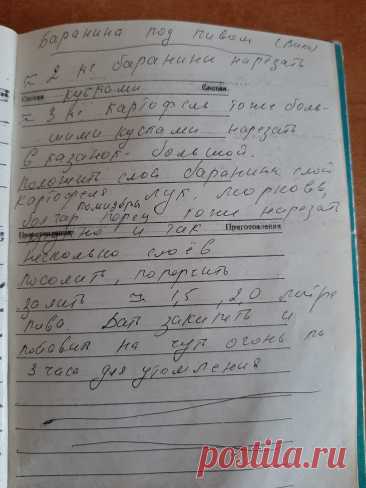 Баранина под пивом (Вика)
≈ 2 кг баранины нарезать
Состав Состав
кусками
≈ 3 кг картофель тоже боль-
шими кусками нарезать
В казанок большой.
положить слой баранины слой
картофеля лук, морковь,
помидоры
болгар перец тоже нарезать
Приготовление Приготовление
и так
несколько слоёв
посолить, поперчить
залить ≈ 1,5, 2,0 литра
пива Дать закипеть и
на огонь на
3 часа для утомления
postila.ru